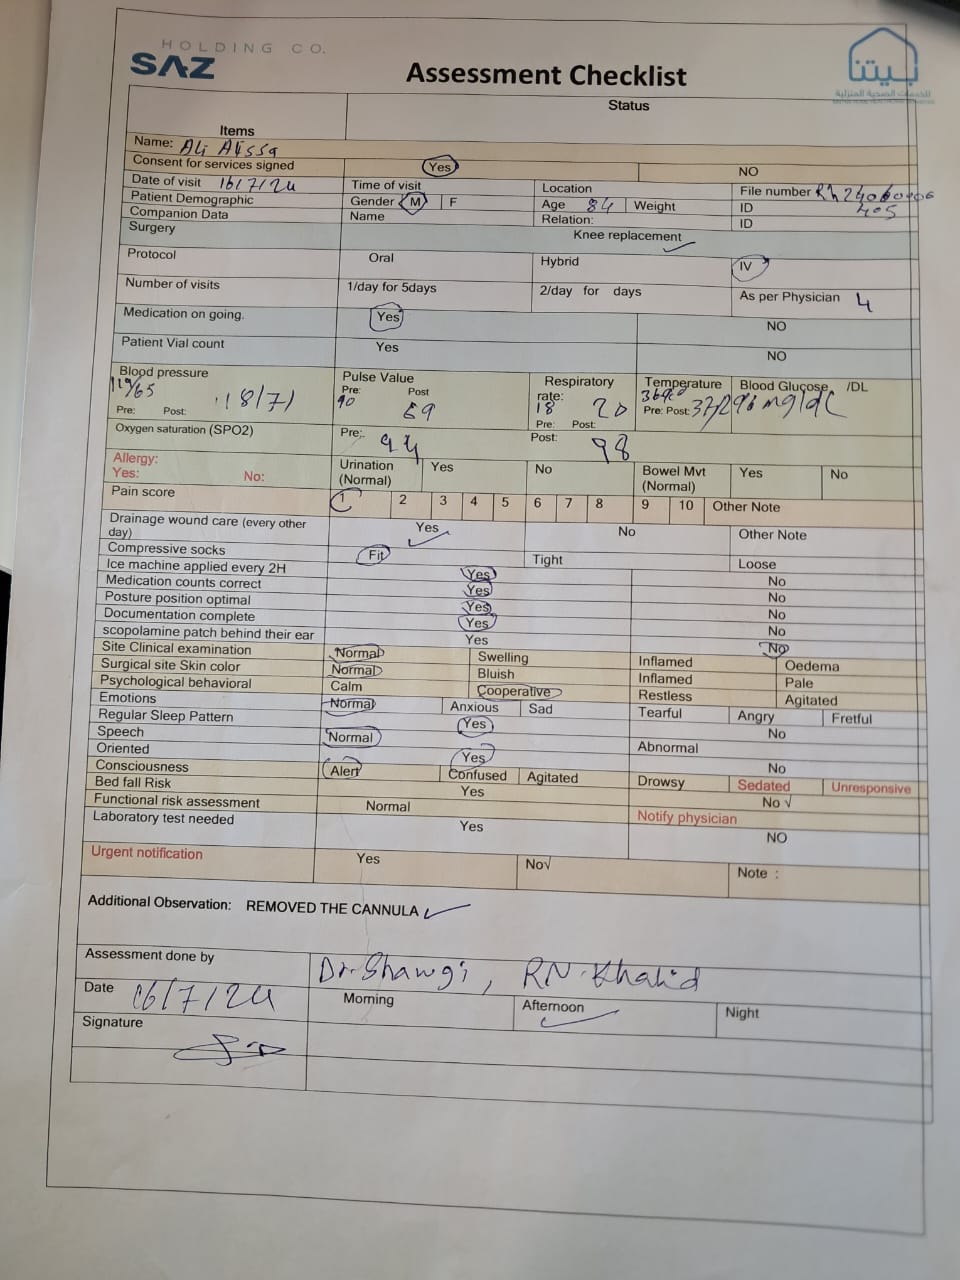 HOLDING CO.
SAZ
بيتنا
للخدمات الصحية المنزلية
Assessment Checklist
Items Status
Name: Ali Alissa
Consent for services signed Yes NO
Date of visit 16/7/24 Time of visit Location File number
Patient Demographic Gender M F Age 84 Weight ID 405
Companion Data Name Relation: ID
Surgery Knee replacement
Protocol Oral Hybrid IV
Number of visits 1/day for 5days 2/day for days As per Physician 4
Medication on going. Yes NO
Patient Vial count Yes NO
Blood pressure Pulse Value Respiratory rate: Temperature Blood Glucose /DL
Pre: Post: Pre: 90 Post 69 Pre: 18 Post: 20 Pre: Post: mg/dL
Oxygen saturation (SPO2) Pre: 94 Post: 98
Allergy: Yes: No: Urination (Normal) Yes No Bowel Mvt (Normal) Yes No
Pain score 1 2 3 4 5 6 7 8 9 10 Other Note
Drainage wound care (every other day) Yes No Other Note
Compressive socks Fit Tight Loose
Ice machine applied every 2H Yes No
Medication counts correct Yes No
Posture position optimal Yes No
Documentation complete Yes No
scopolamine patch behind their ear Yes No
Site Clinical examination Normal Swelling Inflamed Oedema
Surgical site Skin color Normal Bluish Inflamed Pale
Psychological behavioral Calm Cooperative Restless Agitated
Emotions Normal Anxious Sad Tearful Angry Fretful
Regular Sleep Pattern Yes No
Speech Normal Abnormal
Oriented Yes No
Consciousness Alert Confused Agitated Drowsy Sedated Unresponsive
Bed fall Risk Yes No √
Functional risk assessment Normal Notify physician
Laboratory test needed Yes NO
Urgent notification Yes No√ Note :
Additional Observation: REMOVED THE CANNULA
Assessment done by Dr. Shawgi, RN. Khalid
Date 16/7/24 Morning Afternoon Night
Signature